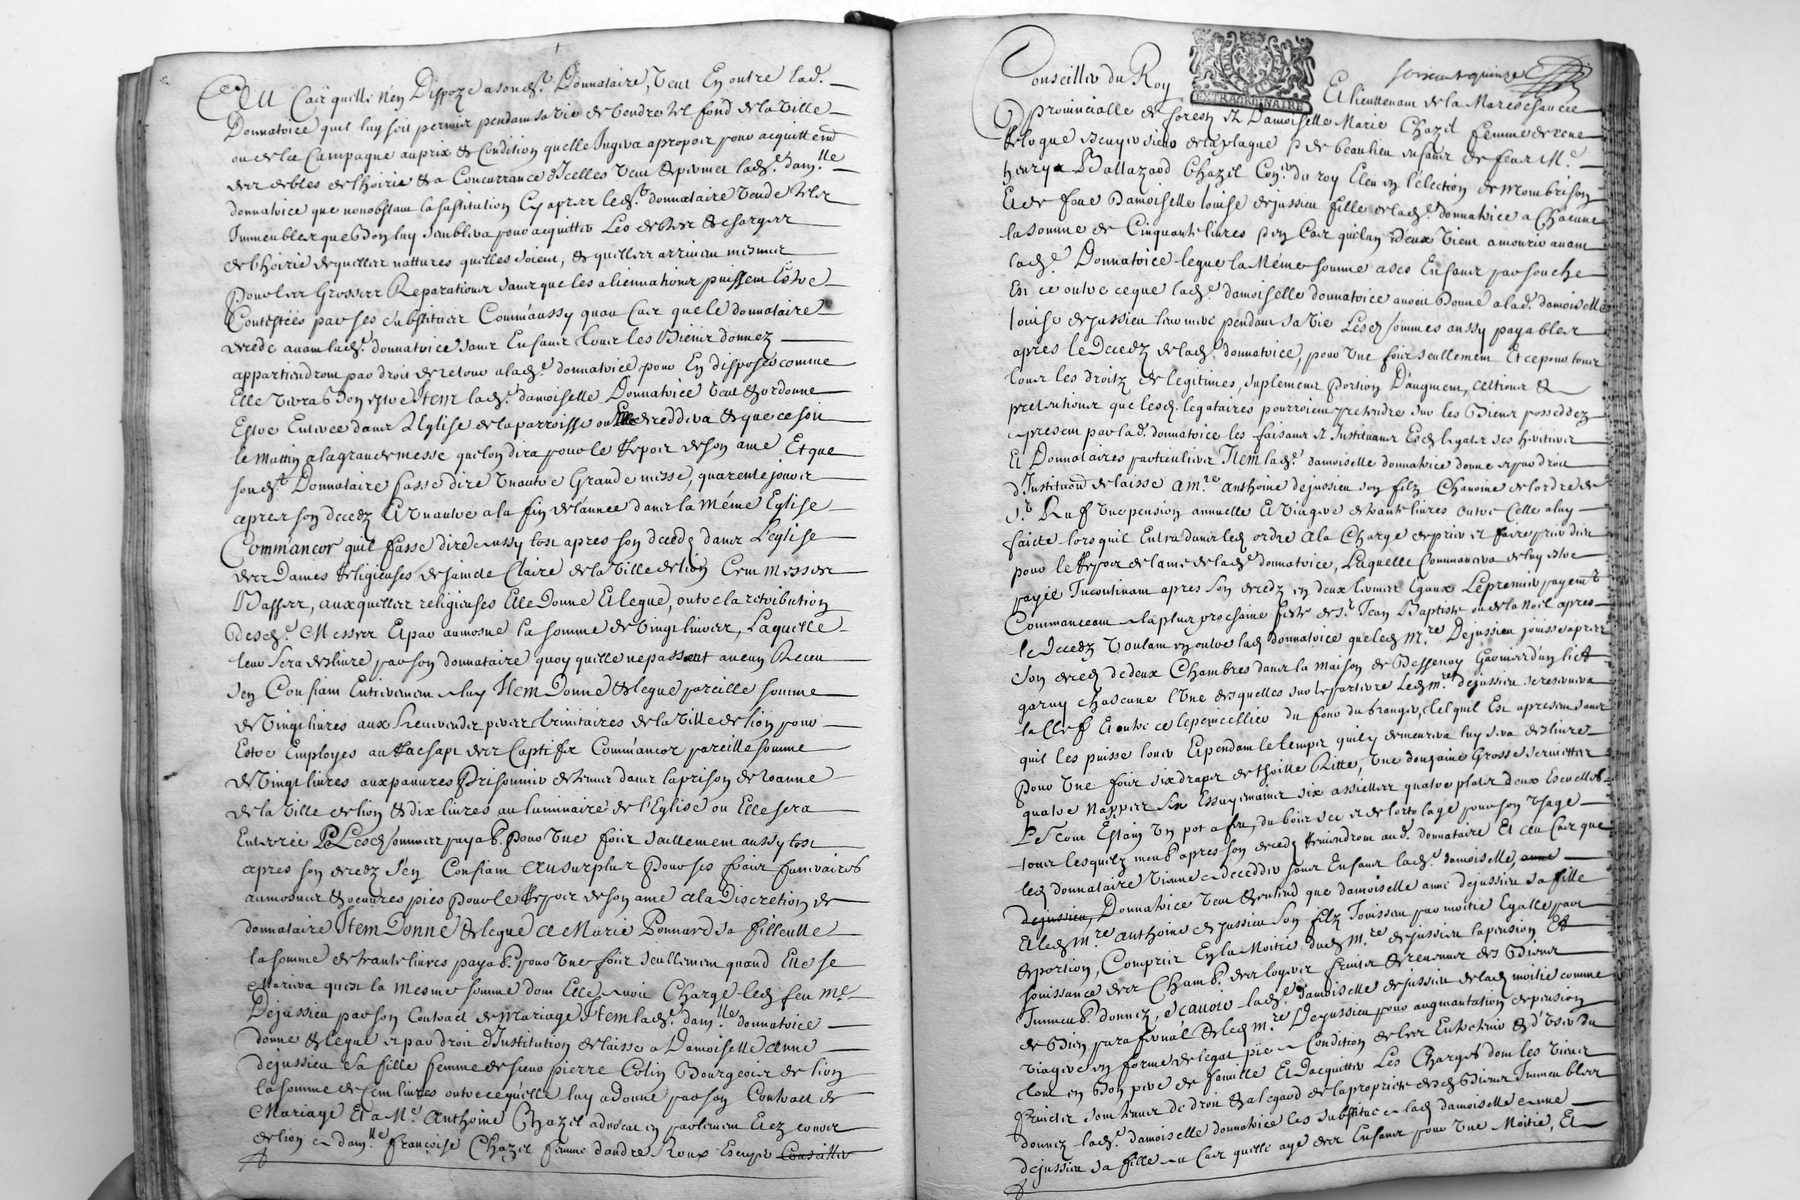 Cas quil n'en Dispoze a son d.t Donnataire, Veut En outre lad.
Donnatrice quil luy soit permis pendant sa vie de Vendre le fond de la Ville
ou de la Campagne au prix & Condition quelle Jugera apropos pour acquitter
des debtes de lhoirie & a Concurrance d'Icelles Veut & permet lad.e dam.lle
donnatrice que nonobstant la sustitution Cy apres led.t donnataire Vende les
Immeubles que bon luy semblera pour acquitter Les debtes & charges
de lhoirie de quelles nattures quelles soient, & quelles arrivent mesmes
pour les Grosses Reparations sans que les alienations puissent Estre
Contestées par ses substitues Comm'aussy quau Cas que le donnataire
decede avant lad.e donnatrice sans Enfans tous les Biens donnez
appartiendront par droit de retour a lad.e donnatrice pour En disposer comme
Elle verra bon estre Item lad.e damoiselle Donnatrice Veut & ordonne
Estre Enterrée dans L'Eglise de la parroisse ou Elle deceddera & que ce soit
le Mattin a la grande messe que lon dira pour le Repos de son ame Et que
son d.t Donnataire fasse dire Un autre Grande messe, quarente jours
apres son decedz Et Un autre a la fin de lannée dans la méme Eglise
Commancer quil fasse dire aussy tost apres son decedz dans L'eglise
des Dames Religieuses de sainte Claire de la Ville de lion Cent Messes
Basses, auxquelles religieuses Elle Donne & legue, outre la retribution
desd.es Messes Et par aumosne la somme de Vingt livres, Laquelle
leur sera delivré par son donnataire quoy quille ne passent aucun Receu
s'en Confiant Entierement a luy Item Donne & legue pareille somme
de Vingt livres aux Reverendz peres trinitaires de la Ville de lion pour
Estre Employes au Rachapt des Captifs Commancer pareille somme
de Vingt livres aux pauvres Prisonniers detenus dans la prison de roanne
de la Ville de lion & dix livres au luminaire de l'Eglise ou Elle sera
Enterrée Lesd. sommes payab. pour Une fois seullement aussy tost
apres son decedz s'en Confiant au surplus pour ses frais funeraires
aumosnes & oeuvres pies pour le Repos de son ame a la Discretion de
donnataire Item Donne & legue a Marie Ponnard sa filleulle
la somme de trante livres payab. pour Une fois seullement quand Elle se
Mariera qui est la mesme somme dont Elle avoit Chargé led. feu M.e
Dejussieu par son Contract de mariage Item lad.e dam.lle donnatrice
donne & legue et par droit d'Institution delaisse a Damoiselle anne
dejussieu sa fille femme de sieur pierre Colin Bourgeois de lion
la somme de Cent livres outre ce qu'elle luy a donne par son Contract de
Mariage Et a M.e Anthoine Chazel advocat en parlement Et ez cours
de lion a dam.lle françoise Chazel femme d'andre Roux Escuyer Conseiller
Conseiller du Roy
EXTRAORDINAIRE
Et lieuttenant de la Mareschaucée
provincialle de forest et Damoiselle Marie Chazel femme de rene
de la plagne s.r de beaulieu enfans de feus M.e
henry Baltazard Chazel Con.er du roy Eleu en l'election de Mombrison
Et de feue Damoiselle louise dejussieu fille de lad.e donnatrice a Chacune
la somme de Cinquante livres & en Cas quelun d'eux Vient a mourir avant
lad.e Donnatrice legue la Méme somme a ses Enfans par souche
Et ce outre ce que lad.e damoiselle donnatrice avoit Donné a lad. damoiselle
louise dejussieu leur mere pendant sa Vie Lesd. sommes aussy payables
apres le Decedz de lad.e donnatrice, pour Une fois seullement Et ce pour tous
tous les droitz de legitimes, suplement portion D'augment, actions &
pretentions que lesd. legataires pourroient pretendre sur les Biens posseddez
a present par lad. donnatrice les faisants et Instituants Esd. legats ses heritiers
Et Donnataires particuliers Item lad.e damoiselle donnatrice donne et par droit
d'Institution delaisse a m.re anthoine dejussieu son filz Chanoine de l'ordre de
S.t Ruf Une pension annuelle Et Viagere de trante livres outre Celle a luy
faicte lors quil Entra dans led. ordre a la Charge de prier et faire prier dieu
pour le Repos de lame de lad.e donnatrice, Laquelle Commancera de luy Estre
payée Incontinant apres son decedz en deux termes Egaux Le premier payem.t
Commanceant a la plus prochaine feste de S.t Jean Baptiste ou de la Noel apres
le Decedz Voulant en outre lad. donnatrice que led. M.re Dejussieu jouisse apres
son decedz de deux Chambres dans la maison de Bessenay Garnies d'un lict
garny chascune l'Une desquelles led. M.re dejussieu se reservera
la Clef Et outre ce
quil les puisse louer Et pendant le temps quil y demeurera luy sera delivré
pour Une fois six draps de thoille Ritte, Une douzaine Grosses serviettes
quatre Nappes six Essuymains six assiettes quatre plats deux Escuelles
Le Tout Estain Un pot a feu, du bois sec et de l'ortolage pour son Usage
tous lesquelz meub. apres son decedz reviendront aud. donnataire Et au Cas que
led. donnataire Vienne a deceder sans Enfans lad.e damoiselle, anne
dejussieu, Donnatrice Veut & entend que damoiselle anne dejussieu sa fille
Et led. M.re anthoine dejussieu son filz Jouissent par moitié Egalle part
& portion, Compris En la Moitié dud. M.re dejussieu la pension Et
Jouissance des Chamb. des logis fruits & revenus des Biens
Immeub. donnez, & avoir lad.e damoiselle dejussieu de lad. moitié comme
de Bien parafernal & led. M.re Dejussieu pour augmantation de pension
Viagere en forme de legat pie a Condition de les Entretenir & d'User du
tout en bon pere de famille Et d'acquitter Les Charges dont les Usu
fruitier sont tenus de droit & a legard de la propriete desd. Biens Immeubles
donnez lad.e damoiselle donnatrice les substitue a lad. damoiselle anne
dejussieu sa fille au Cas quelle aye des Enfans pour Une Moitié, Et